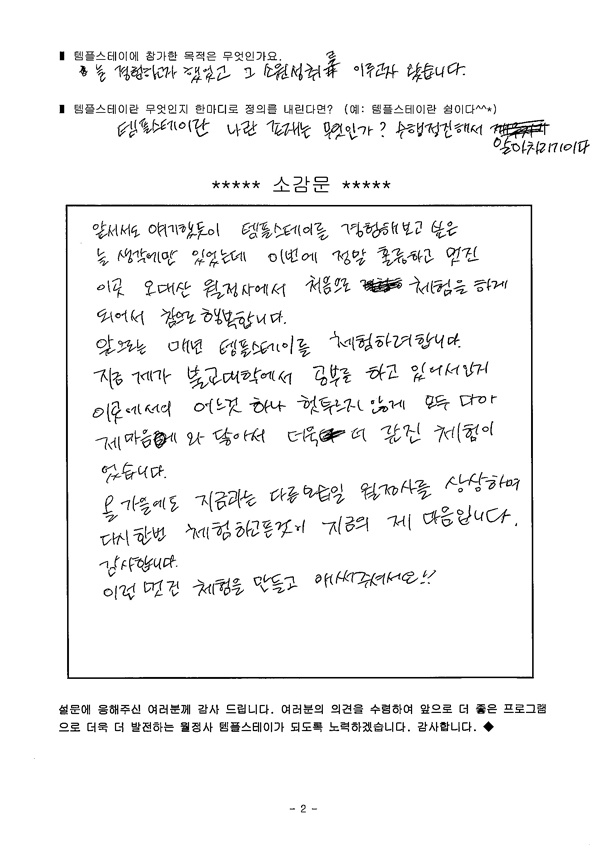 ■ 템플스테이에 참가한 목적은 무엇인가요.
늘 경험하고자 했었고 그 소원성취를 이루고자 왔습니다.
■ 템플스테이란 무엇인지 한마디로 정의를 내린다면? (예: 템플스테이란 쉼이다^^*)
템플스테이란 나란 존재는 무엇인가? 수행정진해서
알아차리기이다
***** 소감문 *****
앞서서도 얘기했듯이 템플스테이를 경험해보고 싶은
늘 생각에만 있었는데 이번에 정말 훌륭하고 멋진
이곳 오대산 월정사에서 처음으로 체험을 하게
되어서 참으로 행복합니다.
앞으로는 매년 템플스테이를 체험하려합니다.
지금 제가 불교대학에서 공부를 하고 있어서인지
이곳에서의 어느것 하나 헛투르지 않게 모두 다아
제마음에 와 닿아서 더욱 더 값진 체험이
었습니다.
올 가을에도 지금과는 다른모습일 월정사를 상상하며
다시한번 체험하고픈것이 지금의 제 마음입니다.
감사합니다.
이런 멋진 체험을 만들고 애써주셔서요!!
설문에 응해주신 여러분께 감사 드립니다. 여러분의 의견을 수렴하여 앞으로 더 좋은 프로그램
으로 더욱 더 발전하는 월정사 템플스테이가 되도록 노력하겠습니다. 감사합니다. ◆
- 2 -